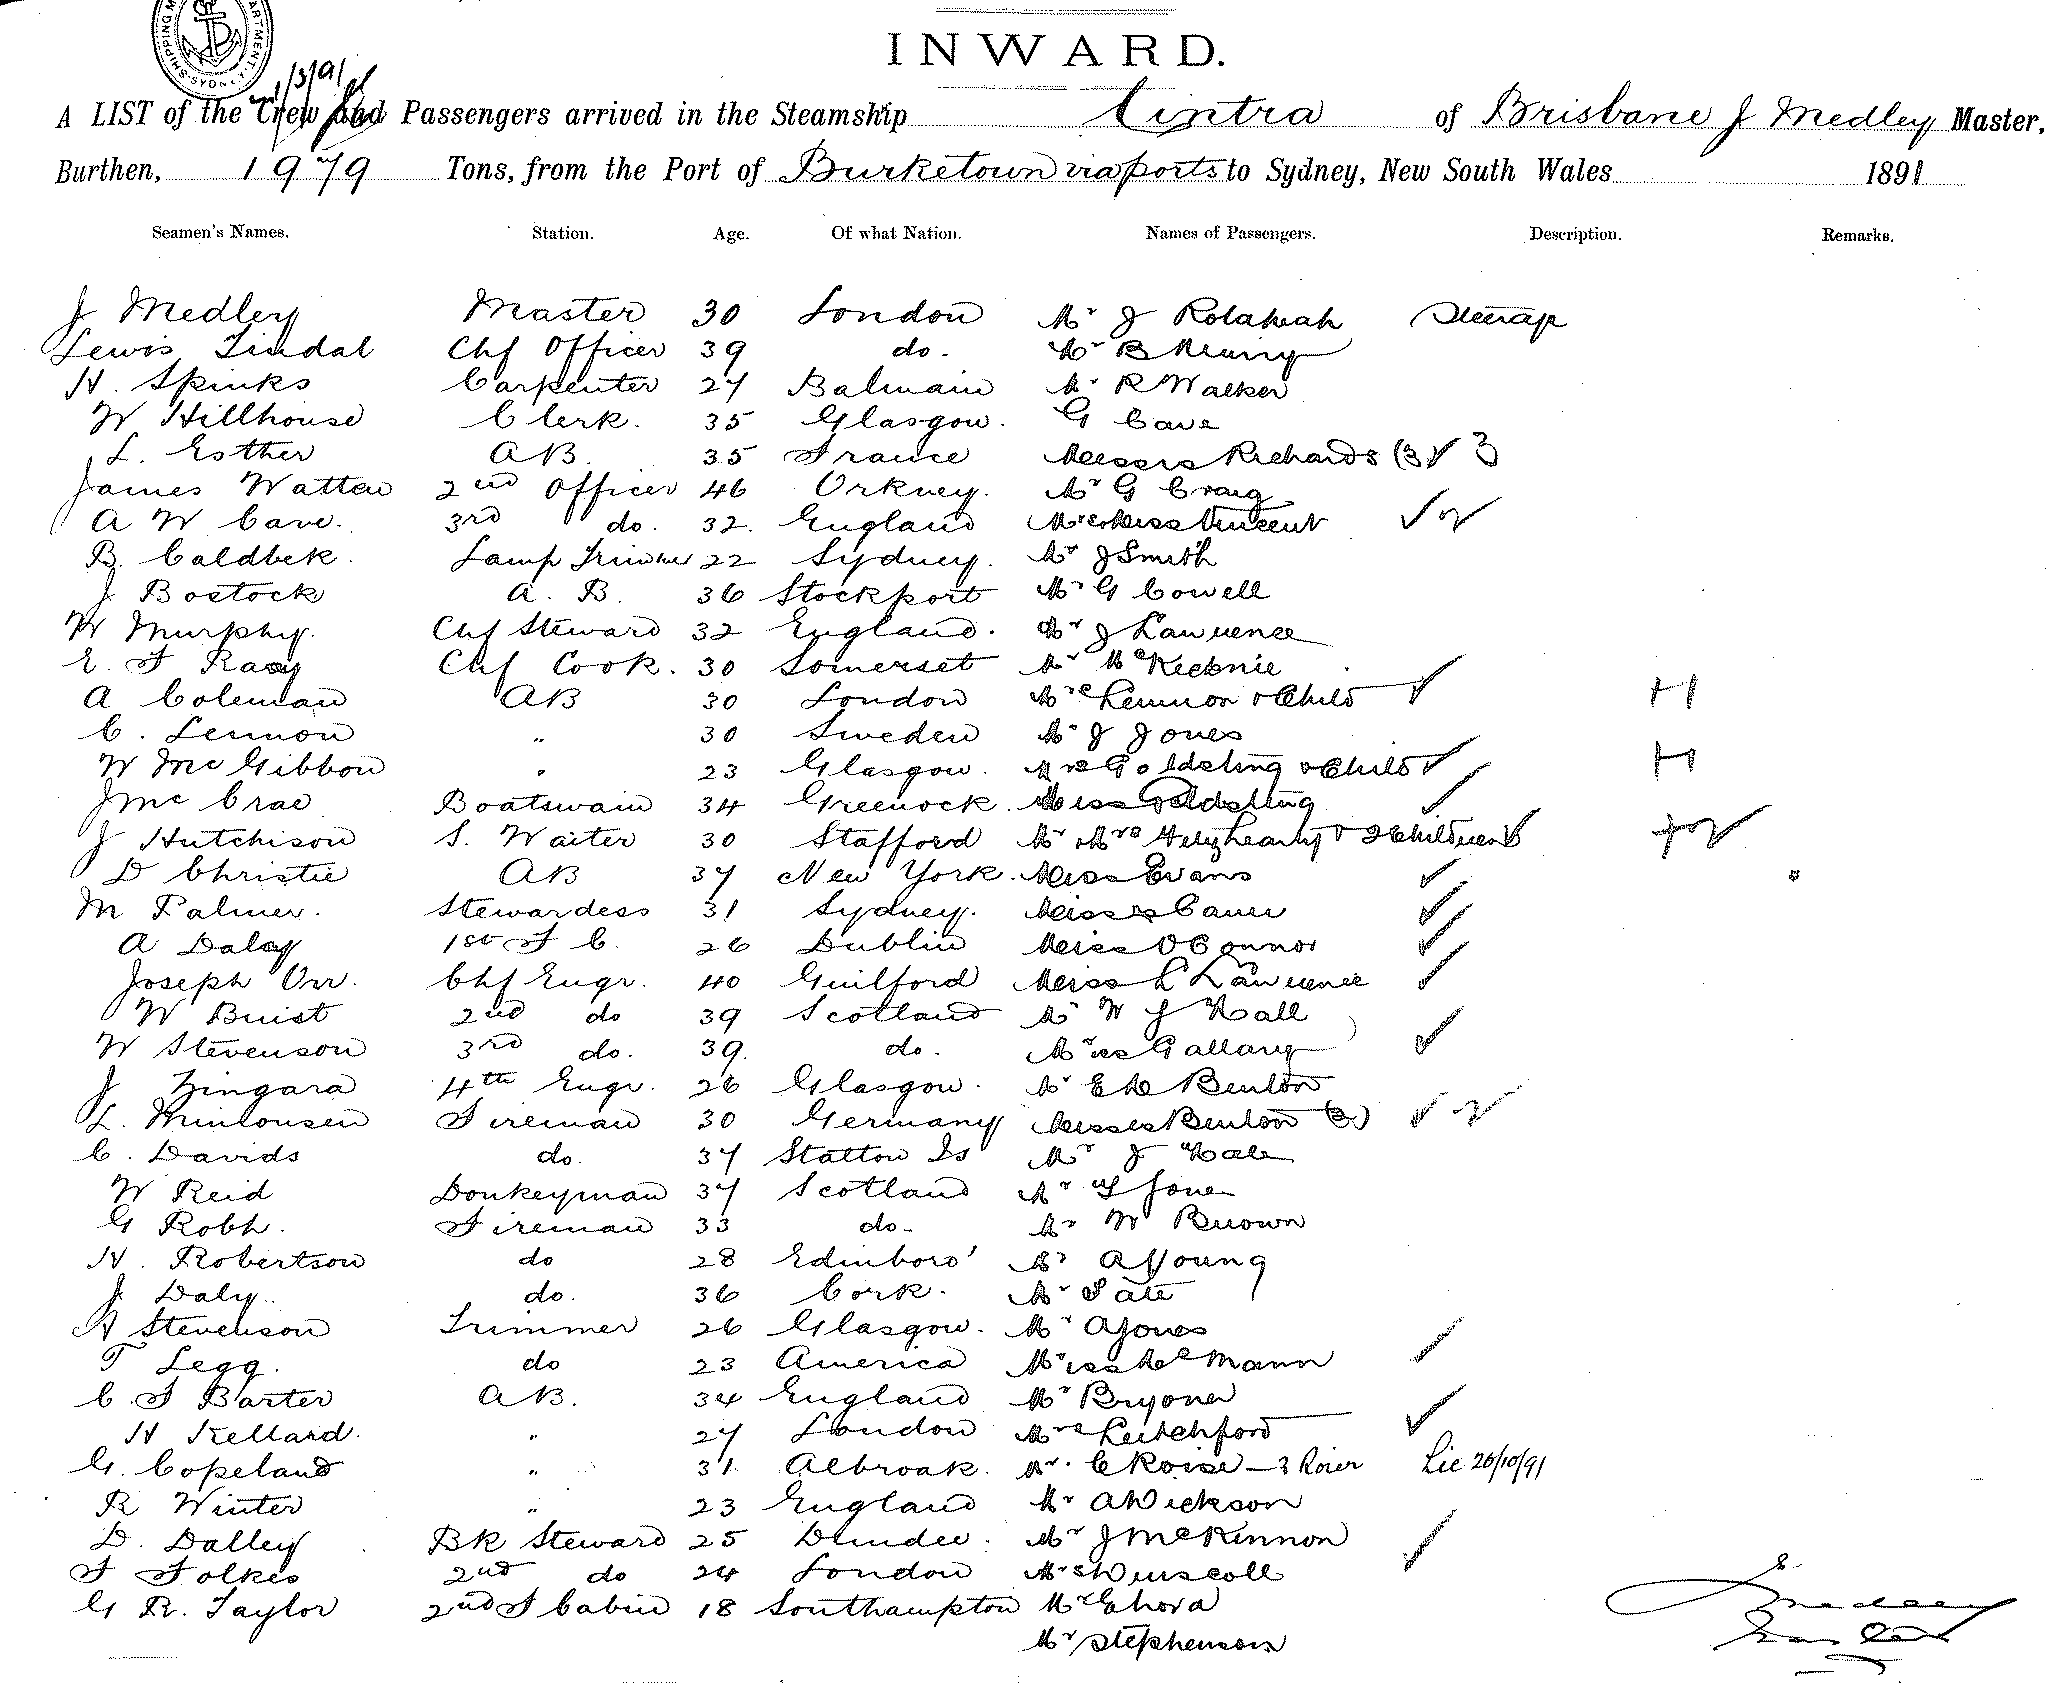 INWARD.
A LIST of the Crew and Passengers arrived in the Steamship Cintra of Brisbane J Medley Master,
Burthen, 1979 Tons, from the Port of Burketown via ports to Sydney, New South Wales 1891
Seamen's Names. Station. Age. Of what Nation. Names of Passengers. Description. Remarks.
J Medley Master 30 London Mr J
Lewis Lindal Chf Officer 39 do. Mr B
H. Spinks Carpenter 27 Balmain Mr R Walker
W Hillhouse Clerk. 35 Glasgow. G Cave
L. Esther AB 35 France Misses Richards (3) 3
James Watten 2nd Officer 46 Orkney. Mr G Craig
A W Cave. 3rd do. 32. England Mrs & Miss Vincent 2
B. Caldbek. Lamp Trimmer 22 Sydney. Mr J Smith
J Bostock A. B. 36 Stockport Mr G Cowell
W Murphy. Chf Steward 32 England. Mr J Lawrence
E. F Racy Chf Cook. 30 Somerset Mr McKechnie
A Coleman AB 30 London Mrs Lennon & Child H
C. Lennon " 30 Sweden Mr J Jones
W McGibbon " 23 Glasgow. Mrs Goldsting & Child H
J McCrae Boatswain 34 Greenock. Miss Goldsting
J Hutchison S. Waiter 30 Stafford Mr Mrs & 2 Children
D Christie AB 37 New York. Miss Evans
M Palmer. Stewardess 31 Sydney. Misses
A Daley 1st F C. 26 Dublin Miss OConnor
Joseph Orr. Chf Engr. 40 Guilford Miss L Lawrence
W Buist 2nd do 39 Scotland Mr W J Hall
W Stevenson 3rd do. 39. do. Mrs
J Zingara 4th Engr. 26 Glasgow. Mr Benton
L. Fireman 30 Germany Misses Benton 2
C. Davids do. 37 Statton Is Mr J Hale
W Reid Donkeyman 37 Scotland Mr Jones
G Robh. Fireman 33 do. Mr W Brown
H. Robertson do 28 Edinboro' Mr A Young
J. Daly. do. 36 Cork. Mr Tate
A Stevenson Trimmer 26 Glasgow. Mr A Jones
T Legg. do 23 America Miss McMann
C. F Barter AB. 34 England Mr Bryoner
H Kellard. " 27 London Mrs Letchford
G. Copeland " 31. Albroak. Mr. C Roise - 3 Lic 26/10/91
R Winter " 23 England Mr A Dickson
D. Dalley Bk Steward 25 Dundee. Mr J McKinnon
F Folkes 2nd do 24 London Mrs Driscoll
G R. Taylor 2nd F Cabin 18 Southampton Mr
Mr Stephenson
Medley
Master